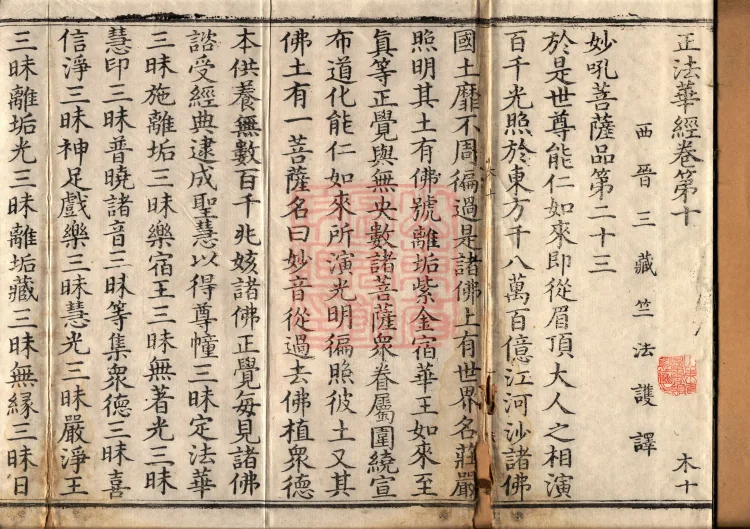 正法華經卷第十 木十
西晉三藏竺法護譯
妙吼菩薩品第二十三
於是世尊能仁如來即從眉頂大人之相演
百千光照於東方千八萬百億江河沙諸佛
國土靡不周徧過是諸佛土有世界名莊嚴
照明其土有佛號離垢紫金宿華王如來至
真等正覺與無央數諸菩薩衆眷屬圍繞宣
布道化能仁如來所演光明徧照彼土又其
佛土有一菩薩名曰妙音從過去佛植衆德
本供養無數百千兆姟諸佛正覺每見諸佛
諮受經典逮成聖慧以得尊幢三昧定法華
三昧施離垢三昧樂宿王三昧無著光三昧
慧印三昧普曉諸音三昧等集衆德三昧喜
信淨三昧神足戲樂三昧慧光三昧嚴淨王
三昧離垢光三昧離垢藏三昧無緣三昧日